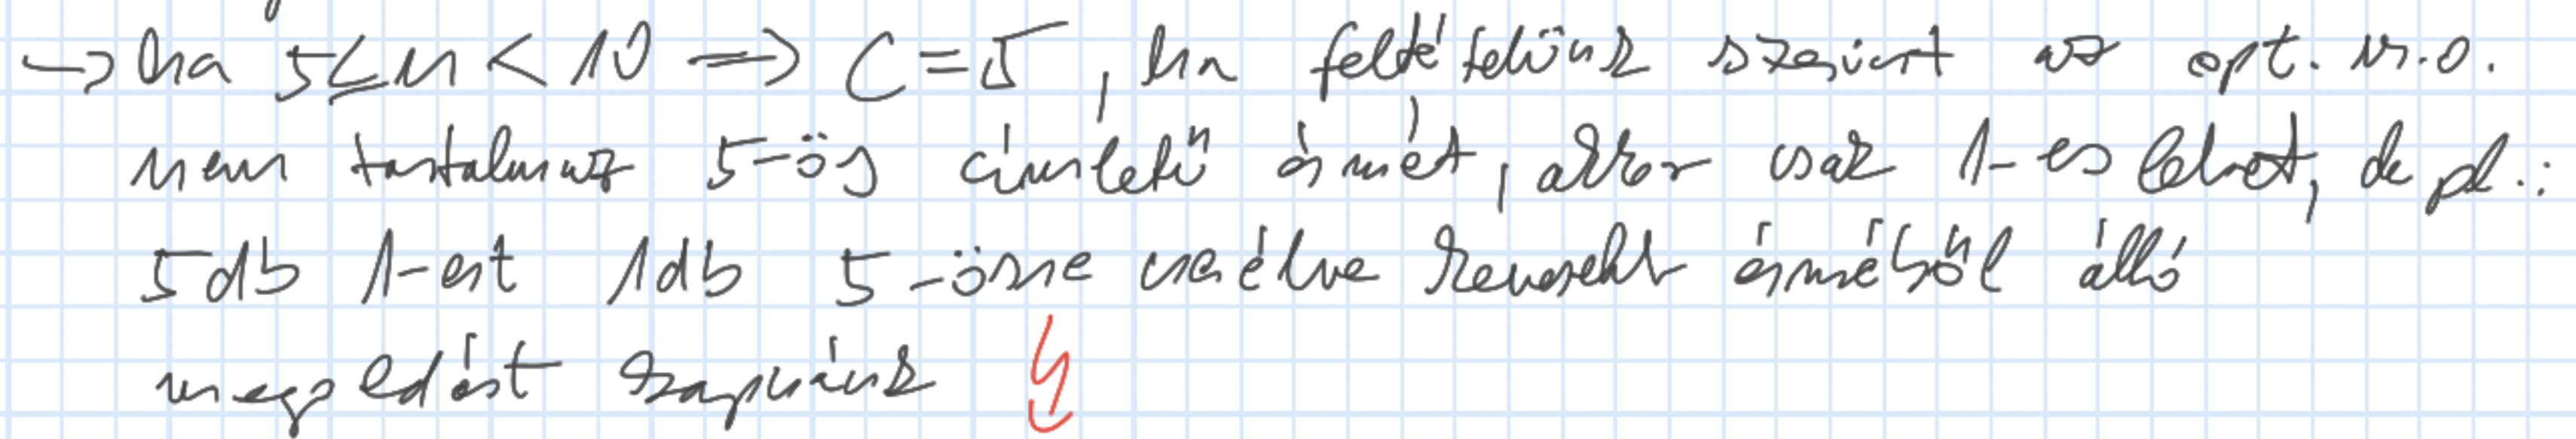 → ha 5≤n<10 ⟹ C=5, ha feltételünk szerint az opt. m.o.
nem tartalmaz 5-ös címletű érmét, akkor csak 1-es lehet, de pl.:
5db 1-est 1db 5-ösre cserélve kevesebb érméből álló
megoldást kapnánk ↯